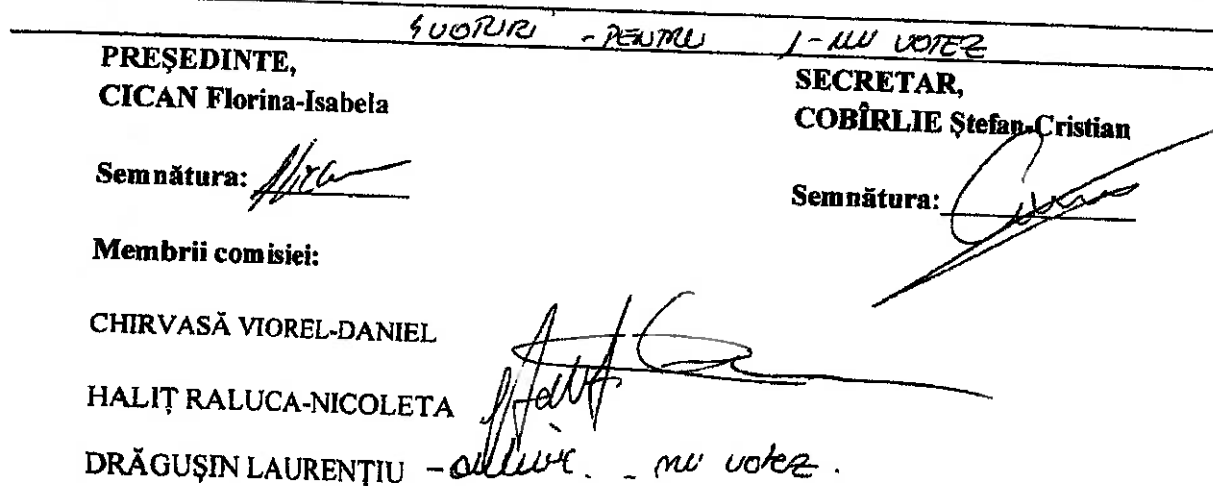 4 VOTURI - PENTRU 1 - NU VOTEZ
PREŞEDINTE,
CICAN Florina-Isabela
SECRETAR,
COBÎRLIE Ştefan-Cristian
Semnătura:
Semnătura:
Membrii comisiei:
CHIRVASĂ VIOREL-DANIEL
HALIŢ RALUCA-NICOLETA
DRĂGUŞIN LAURENŢIU - - nu votez.